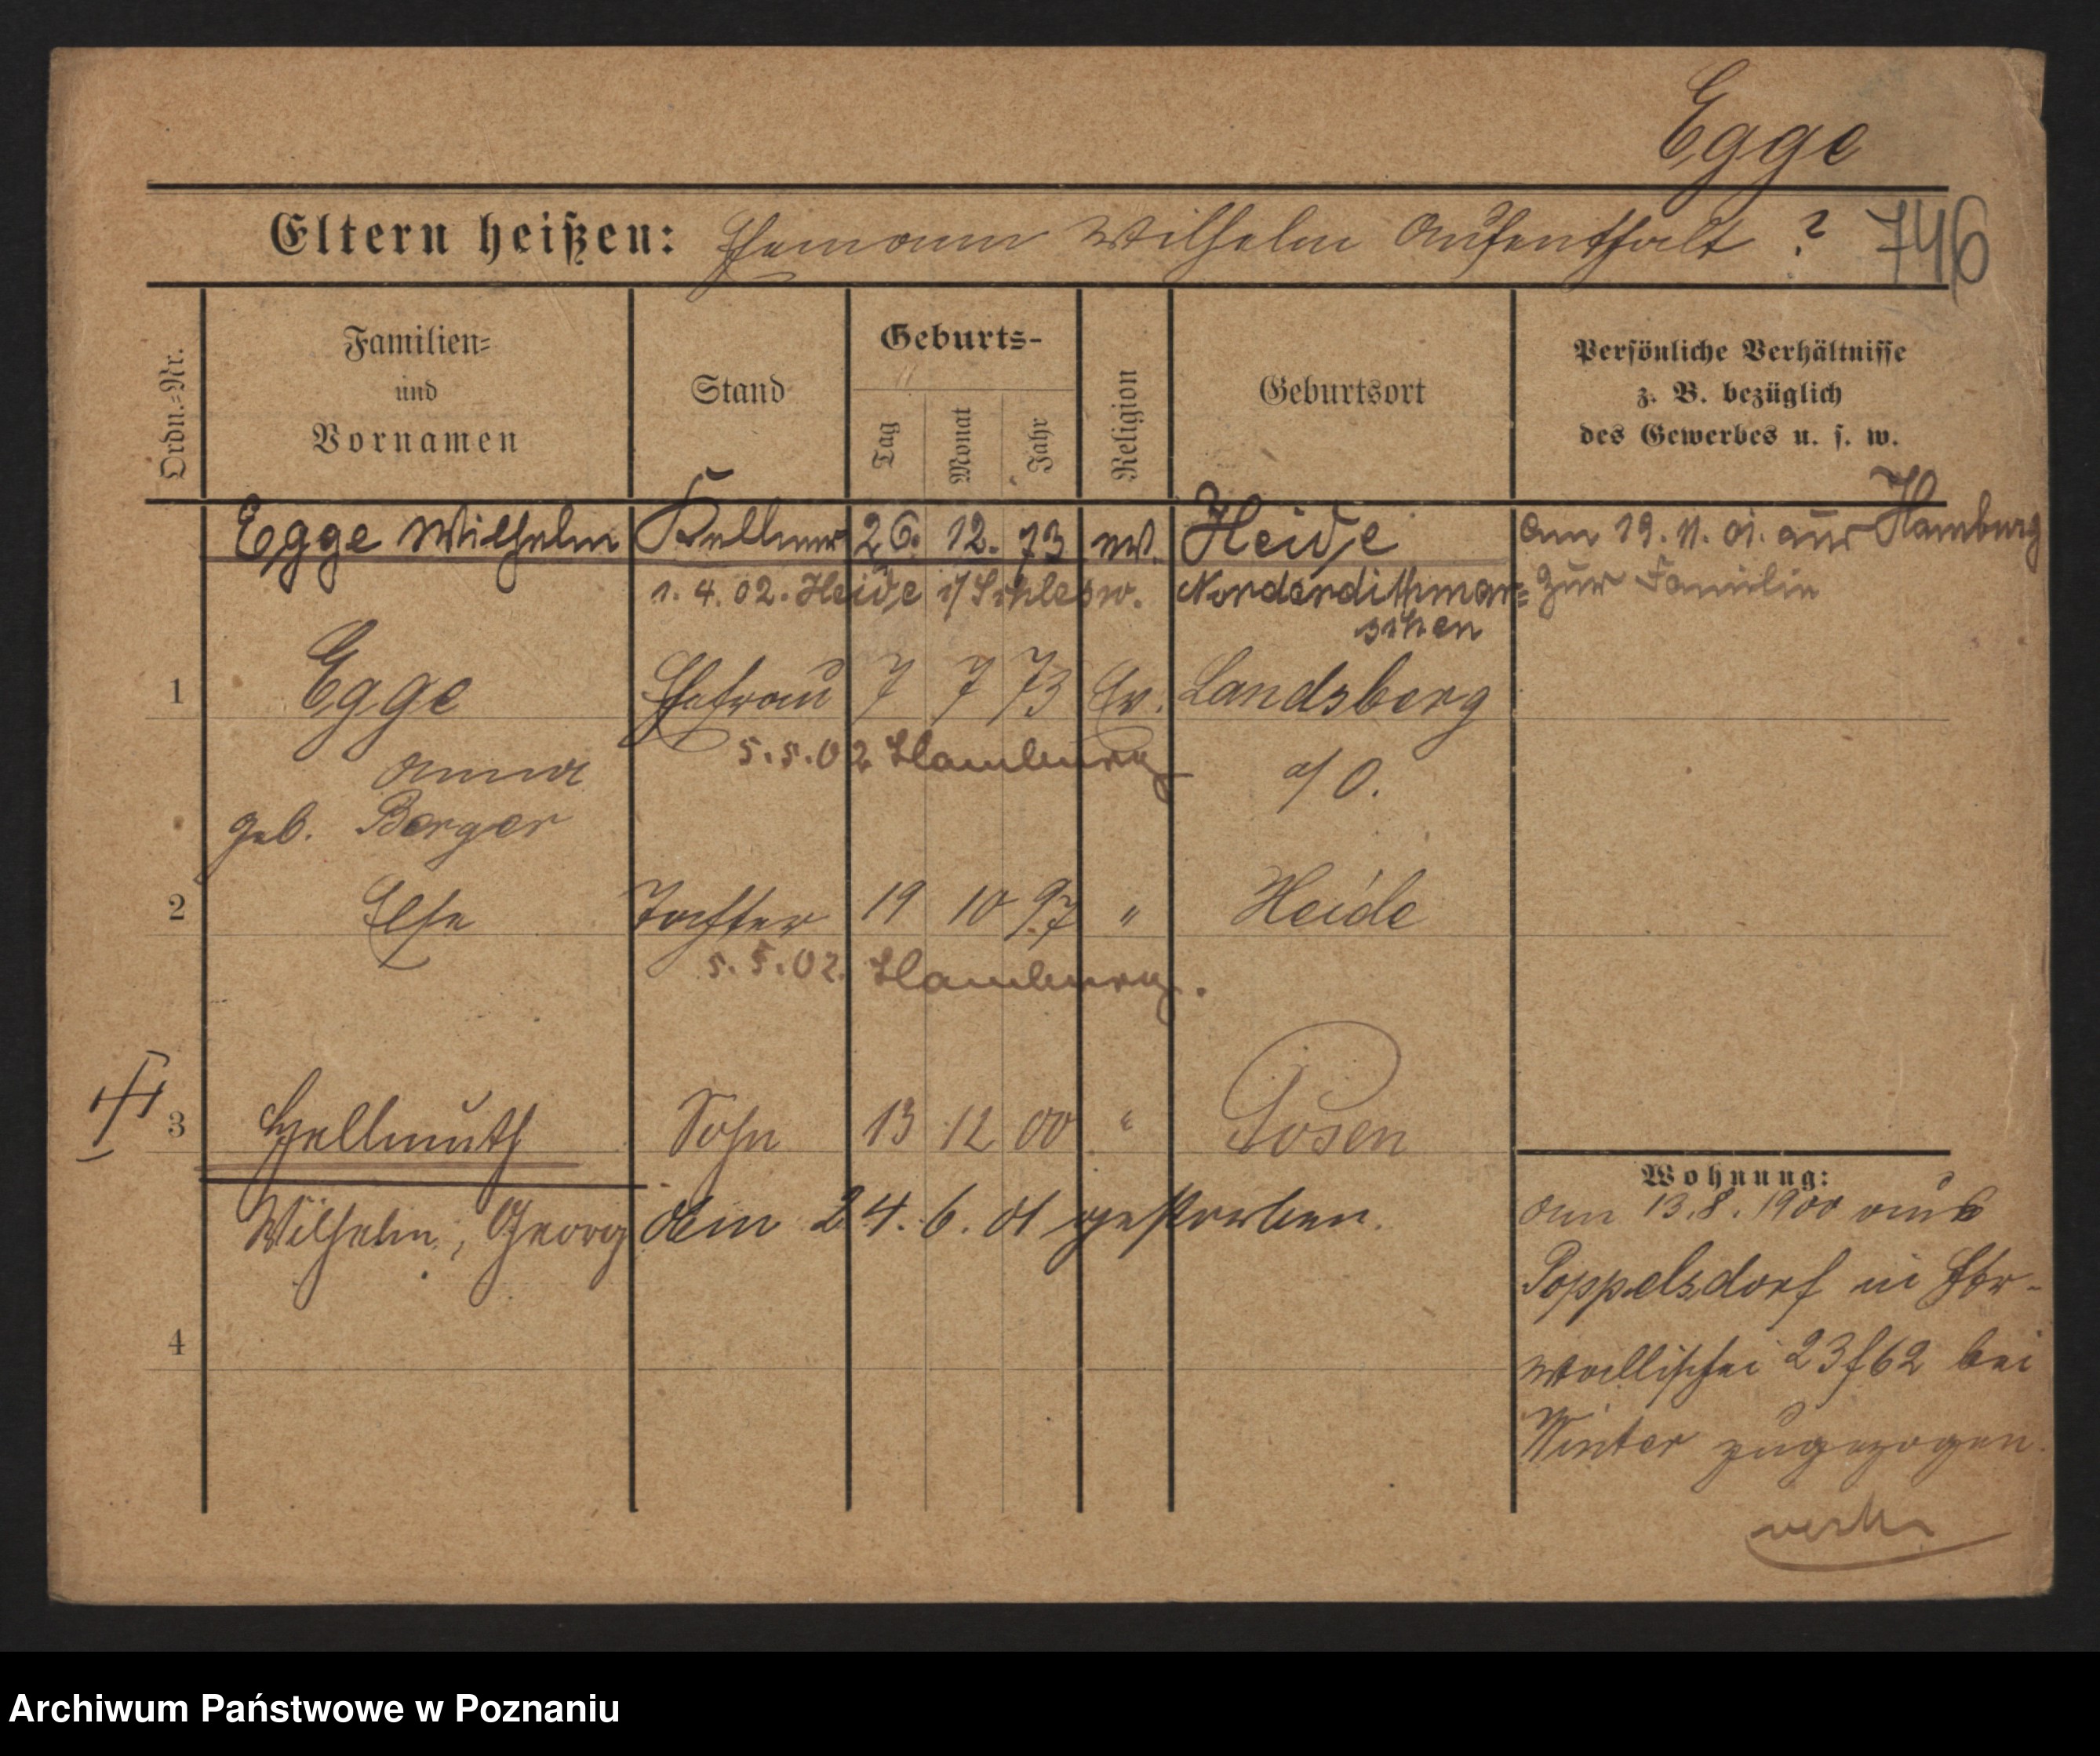 Egge
Eltern heißen: Ehemann Wilhelm Aufenthalt ? 746
Ordn.=Nr.
Familien=
und
Vornamen
Stand
Geburts-
Tag
Monat
Jahr
Religion
Geburtsort
Persönliche Verhältnisse
z. B. bezüglich
des Gewerbes u. s. w.
Egge Wilhelm Kellner 26. 12. 73 ev. Heide am 19. 11. 01. aus Hamburg
1. 4. 02. Heide i/Schlesw. Norderdithmar= zur Familie
schen
1 Egge Ehefrau 7 7 73 Ev. Landsberg
5. 5. 02 Hamburg
Anna a/O.
geb. Berger
2 Else Tochter 19 10 97 " Heide
5. 5. 02. Hamburg.
3 Hellmuth Sohn 13 12 00 " Posen
Wilhelm, Georg am 24. 6. 01 gestorben.
4
Wohnung:
am 13. 8. 1900 aus
Poppelsdorf in
wallischei 23 f 62 bei
Winter zugezogen.
Archiwum Państwowe w Poznaniu